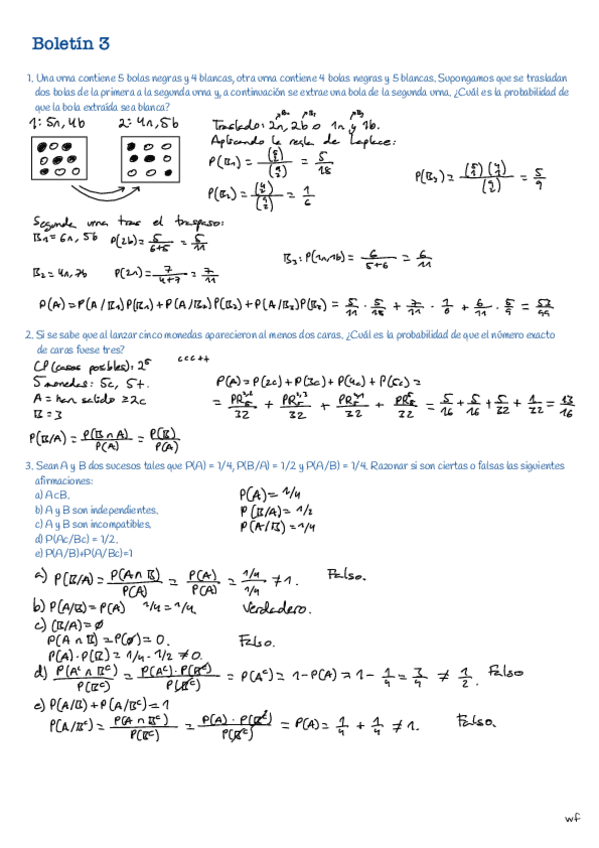 Boletín 3
1. Una urna contiene 5 bolas negras y 4 blancas, otra urna contiene 4 bolas negras y 5 blancas. Supongamos que se trasladan
dos bolas de la primera a la segunda urna y, a continuación se extrae una bola de la segunda urna. ¿Cuál es la probabilidad de
que la bola extraída sea blanca?
1: 5n, 4b 2: 4n, 5b Traslado: 2n, 2b o 1n y 1b.
Aplicando la regla de Laplace:
P(B₁) = (5 2)/(9 2) = 5/18
P(B₂) = (4 2)/(9 2) = 1/6
P(B₃) = (5 1)(4 1)/(9 2) = 5/9
Segunda urna tras el traspaso:
B₁ = 6n, 5b P(2b) = 5/(6+5) = 5/11
B₃: P(1n,1b) = 6/(5+6) = 6/11
B₂ = 4n, 7b P(2n) = 7/(4+7) = 7/11
P(A) = P(A/B₁)P(B₁) + P(A/B₂)P(B₂) + P(A/B₃)P(B₃) = 5/11 · 5/18 + 7/11 · 1/6 + 6/11 · 5/9 = 53/99
2. Si se sabe que al lanzar cinco monedas aparecieron al menos dos caras. ¿Cuál es la probabilidad de que el número exacto
de caras fuese tres?
CP (casos posibles): 2⁵ ccc++
5 monedas: 5c, 5+.
A = han salido ≥2c
B = 3
P(A) = P(2c) + P(3c) + P(4c) + P(5c) =
= 5/16 + 5/16 + 5/32 + 1/32 = 13/16
P(B/A) = P(B∩A)/P(A) = P(B)/P(A)
3. Sean A y B dos sucesos tales que P(A) = 1/4, P(B/A) = 1/2 y P(A/B) = 1/4. Razonar si son ciertas o falsas las siguientes
afirmaciones:
a) AcB.
b) A y B son independientes.
c) A y B son incompatibles.
d) P(Ac/Bc) = 1/2.
e) P(A/B)+P(A/Bc)=1
P(A) = 1/4
P(B/A) = 1/2
P(A/B) = 1/4
a) P(B/A) = P(A∩B)/P(A) = P(A)/P(A) = 1/4 / 1/4 ≠ 1. Falso.
b) P(A/B) = P(A) 1/4 = 1/4. Verdadero.
c) (B/A) = ∅
P(A∩B) = P(∅) = 0. Falso.
P(A)·P(B) = 1/4 · 1/2 ≠ 0.
d) P(Aᶜ∩Bᶜ)/P(Bᶜ) = P(Aᶜ)·P(Bᶜ)/P(Bᶜ) = P(Aᶜ) = 1-P(A) = 1 - 1/4 = 3/4 ≠ 1/2. Falso
e) P(A/B) + P(A/Bᶜ) = 1
P(A/Bᶜ) = P(A∩Bᶜ)/P(Bᶜ) = P(A)·P(Bᶜ)/P(Bᶜ) = P(A) = 1/4 + 1/4 ≠ 1. Falso.
wf